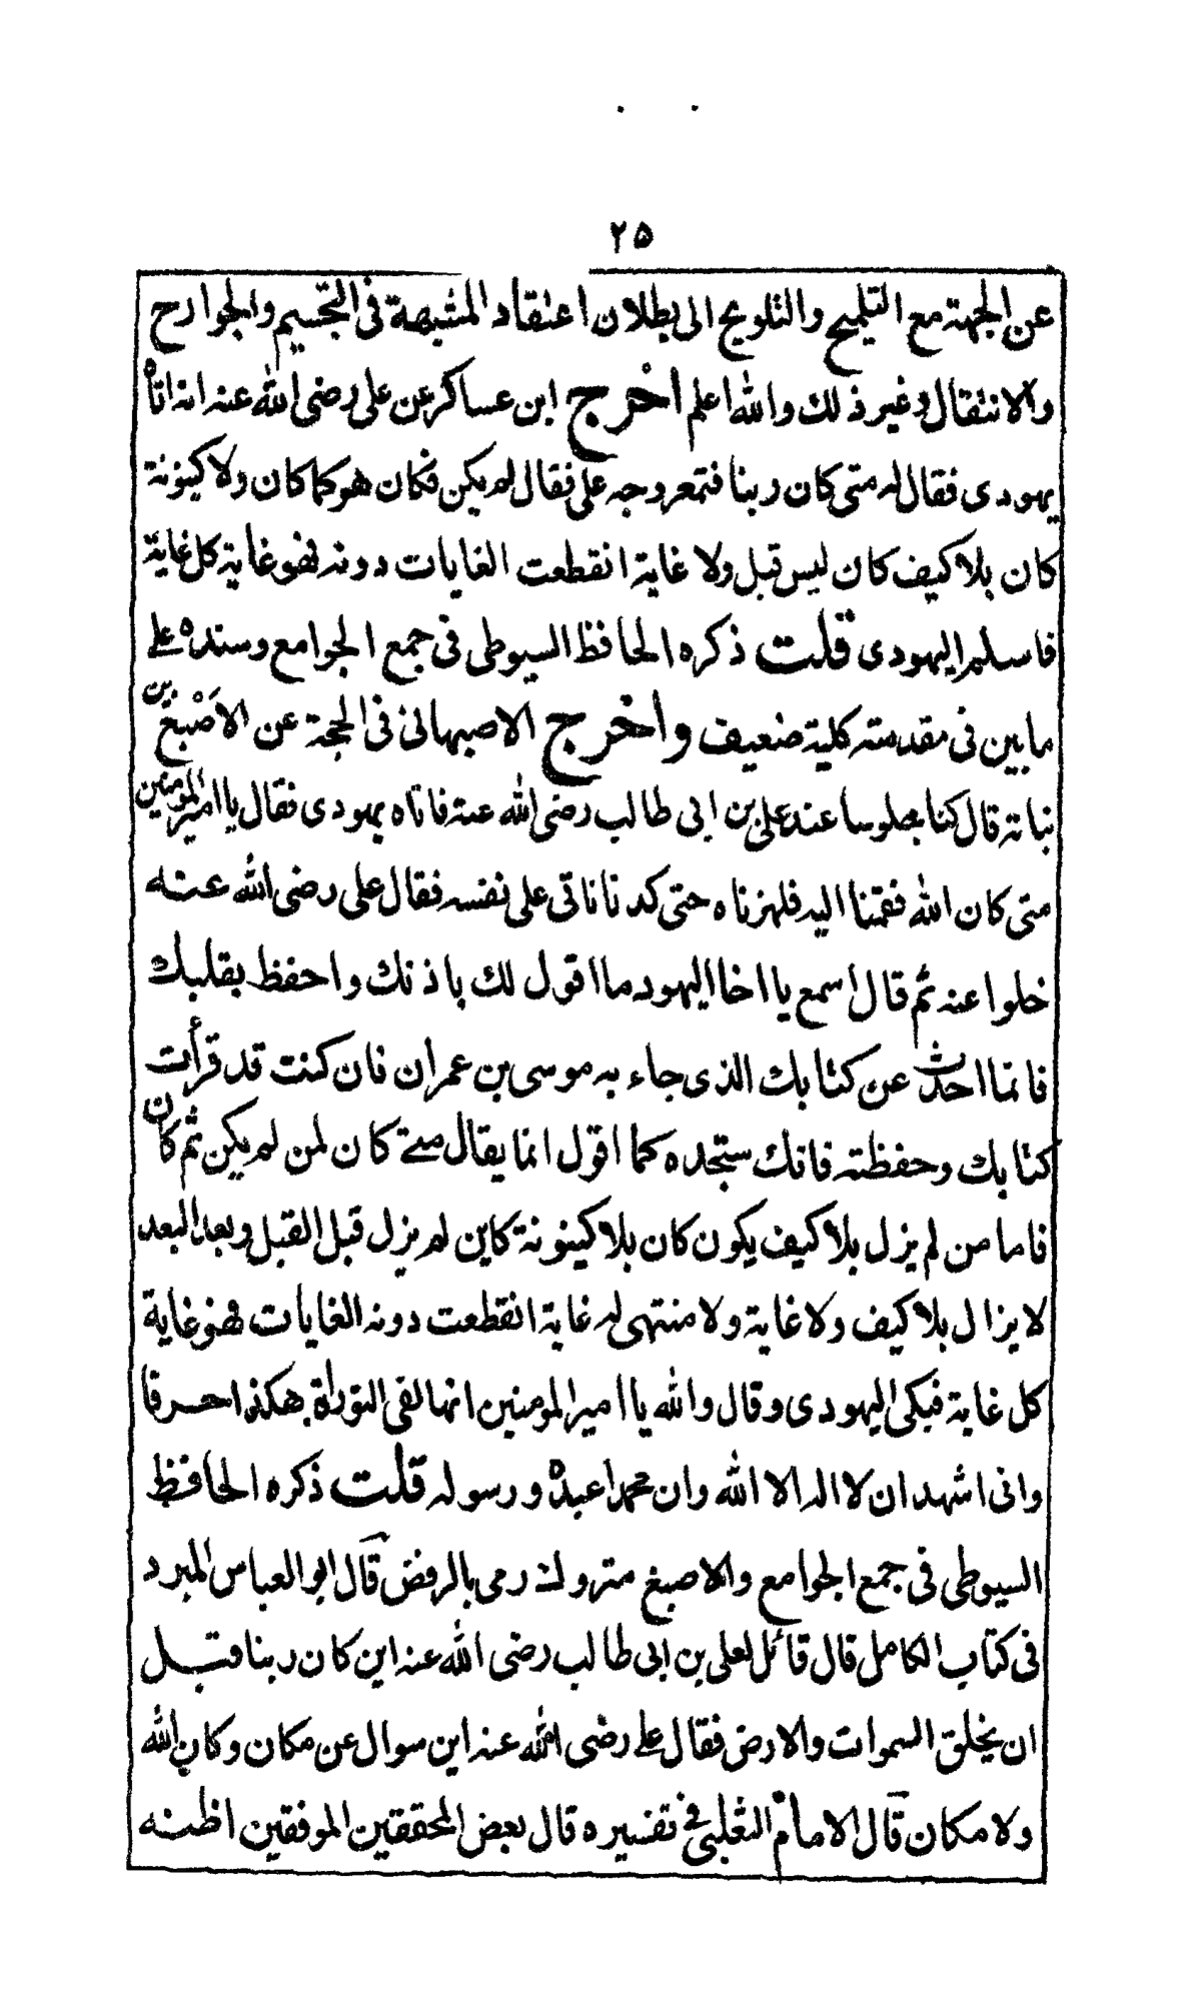 ٢٥
عن الجهة مع التلميح والتلويح الى بطلان اعتقاد المشبهة فى التجسيم والجوارح
والانتقال وغير ذلك والله اعلم اخرج ابن عساكر عن على رضى الله عنه انه اتاه
يهودى فقال له متى كان ربنا فتمعر وجه على فقال لم يكن فكان هو كما كان ولا كينونة
كان بلا كيف كان ليس قبل ولا غاية انقطعت الغايات دونه فهو غاية كل غاية
فاسلم اليهودى قلت ذكره الحافظ السيوطى فى جمع الجوامع وسنده على
ما بين فى مقدمته كلية ضعيف واخرج الاصبهانى فى الحجة عن الاصْبغ بن
نباتة قال كنا جلوسا عند على بن ابى طالب رضى الله عنه فاتاه يهودى فقال يا امير المومنين
متى كان الله فقمنا اليه فلهزناه حتى كدنا ناتى على نفسه فقال على رضى الله عنه
خلوا عنه ثم قال اسمع يا اخا اليهود ما اقول لك باذنك واحفظ بقلبك
فانما احدث عن كتابك الذى جاء به موسى بن عمران فان كنت قد قرأت
كتابك وحفظته فانك ستجده كما اقول انما يقال متى كان لمن لم يكن ثم كان
فاما من لم يزل بلا كيف يكون كان بلا كينونة كاين لم يزل قبل القبل وبعد البعد
لا يزال بلا كيف ولا غاية ولا منتهى له غاية انقطعت دونه الغايات فهو غاية
كل غاية فبكى اليهودى وقال والله يا امير المومنين انها لفى التوراة هكذا حرفا
وانى اشهد ان لا اله الا الله وان محمدا عبده ورسوله قلت ذكره الحافظ
السيوطى فى جمع الجوامع والاصبغ متروك رمى بالرفض قال ابو العباس المبرد
فى كتاب الكامل قال قائل لعلى بن ابى طالب رضى الله عنه اين كان ربنا قبل
ان يخلق السموات والارض فقال على رضى الله عنه اين سوال عن مكان وكان الله
ولا مكان قال الامام الثعلبى فى تفسيره قال بعض المحققين الموفقين اظنه